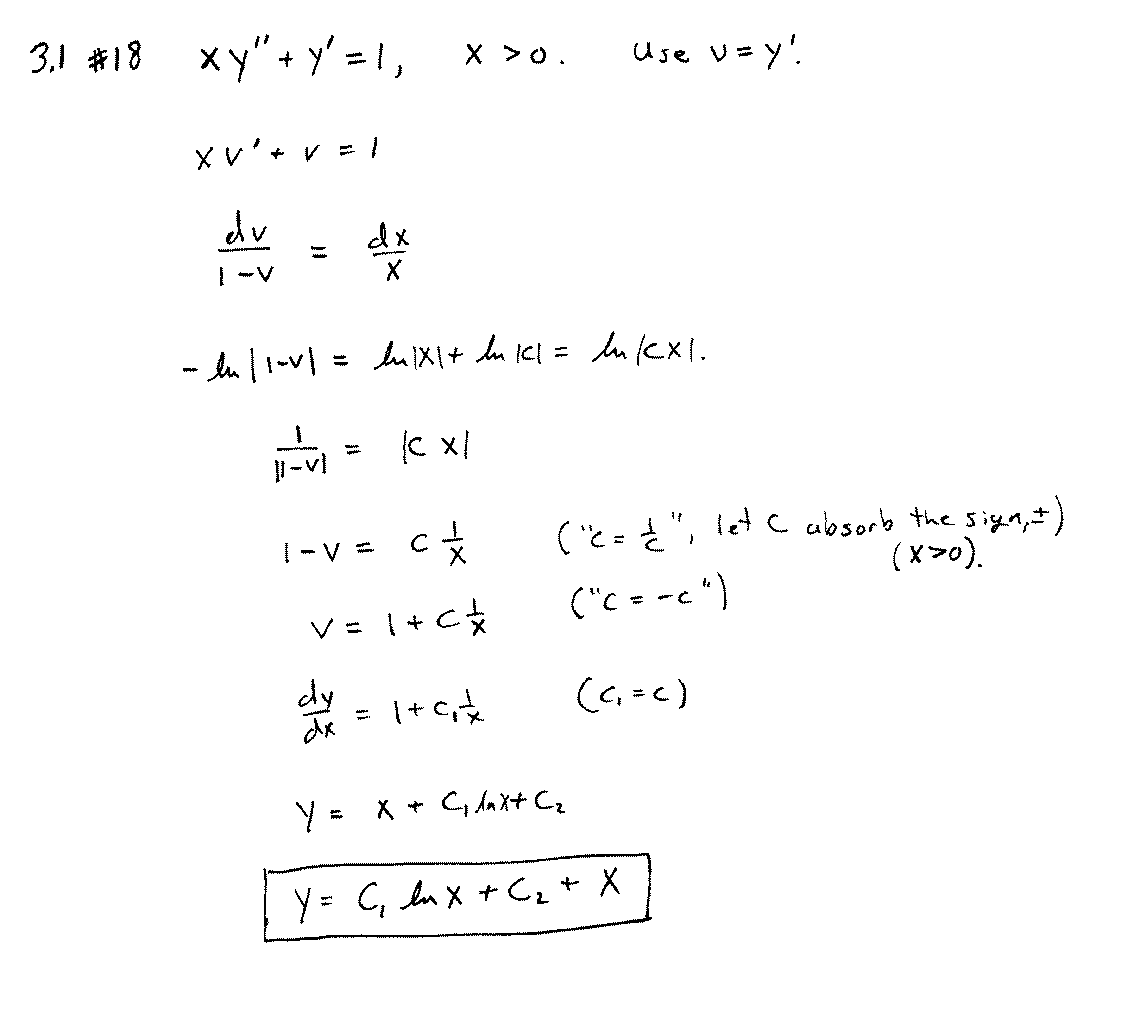 3.1 #18 xy" + y' = 1, x > 0. Use v = y'.
xv' + v = 1
dv/(1-v) = dx/x
- ln|1-v| = ln|x| + ln|c| = ln|cx|.
1/|1-v| = |c x|
1-v = c 1/x ("c = 1/c", let c absorb the sign, ±)
(x>0).
v = 1 + c 1/x ("c = -c")
dy/dx = 1 + c₁ 1/x (c₁ = c)
y = x + C₁ ln x + C₂
y = C₁ ln x + C₂ + x